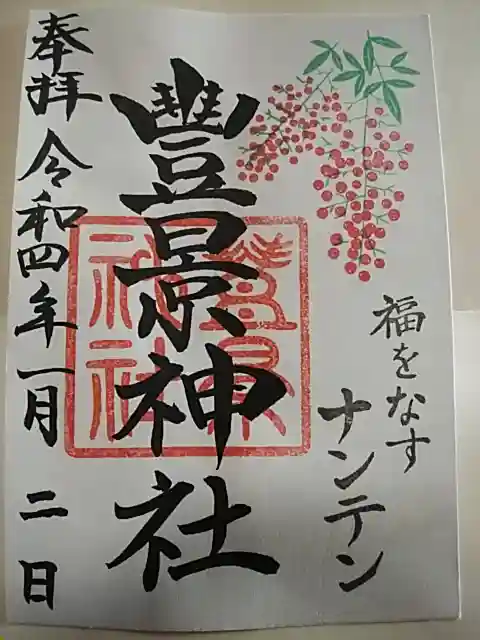 福をなす
ナンテン
豐景神社
奉拝 令和四年一月二日
豐景
神社